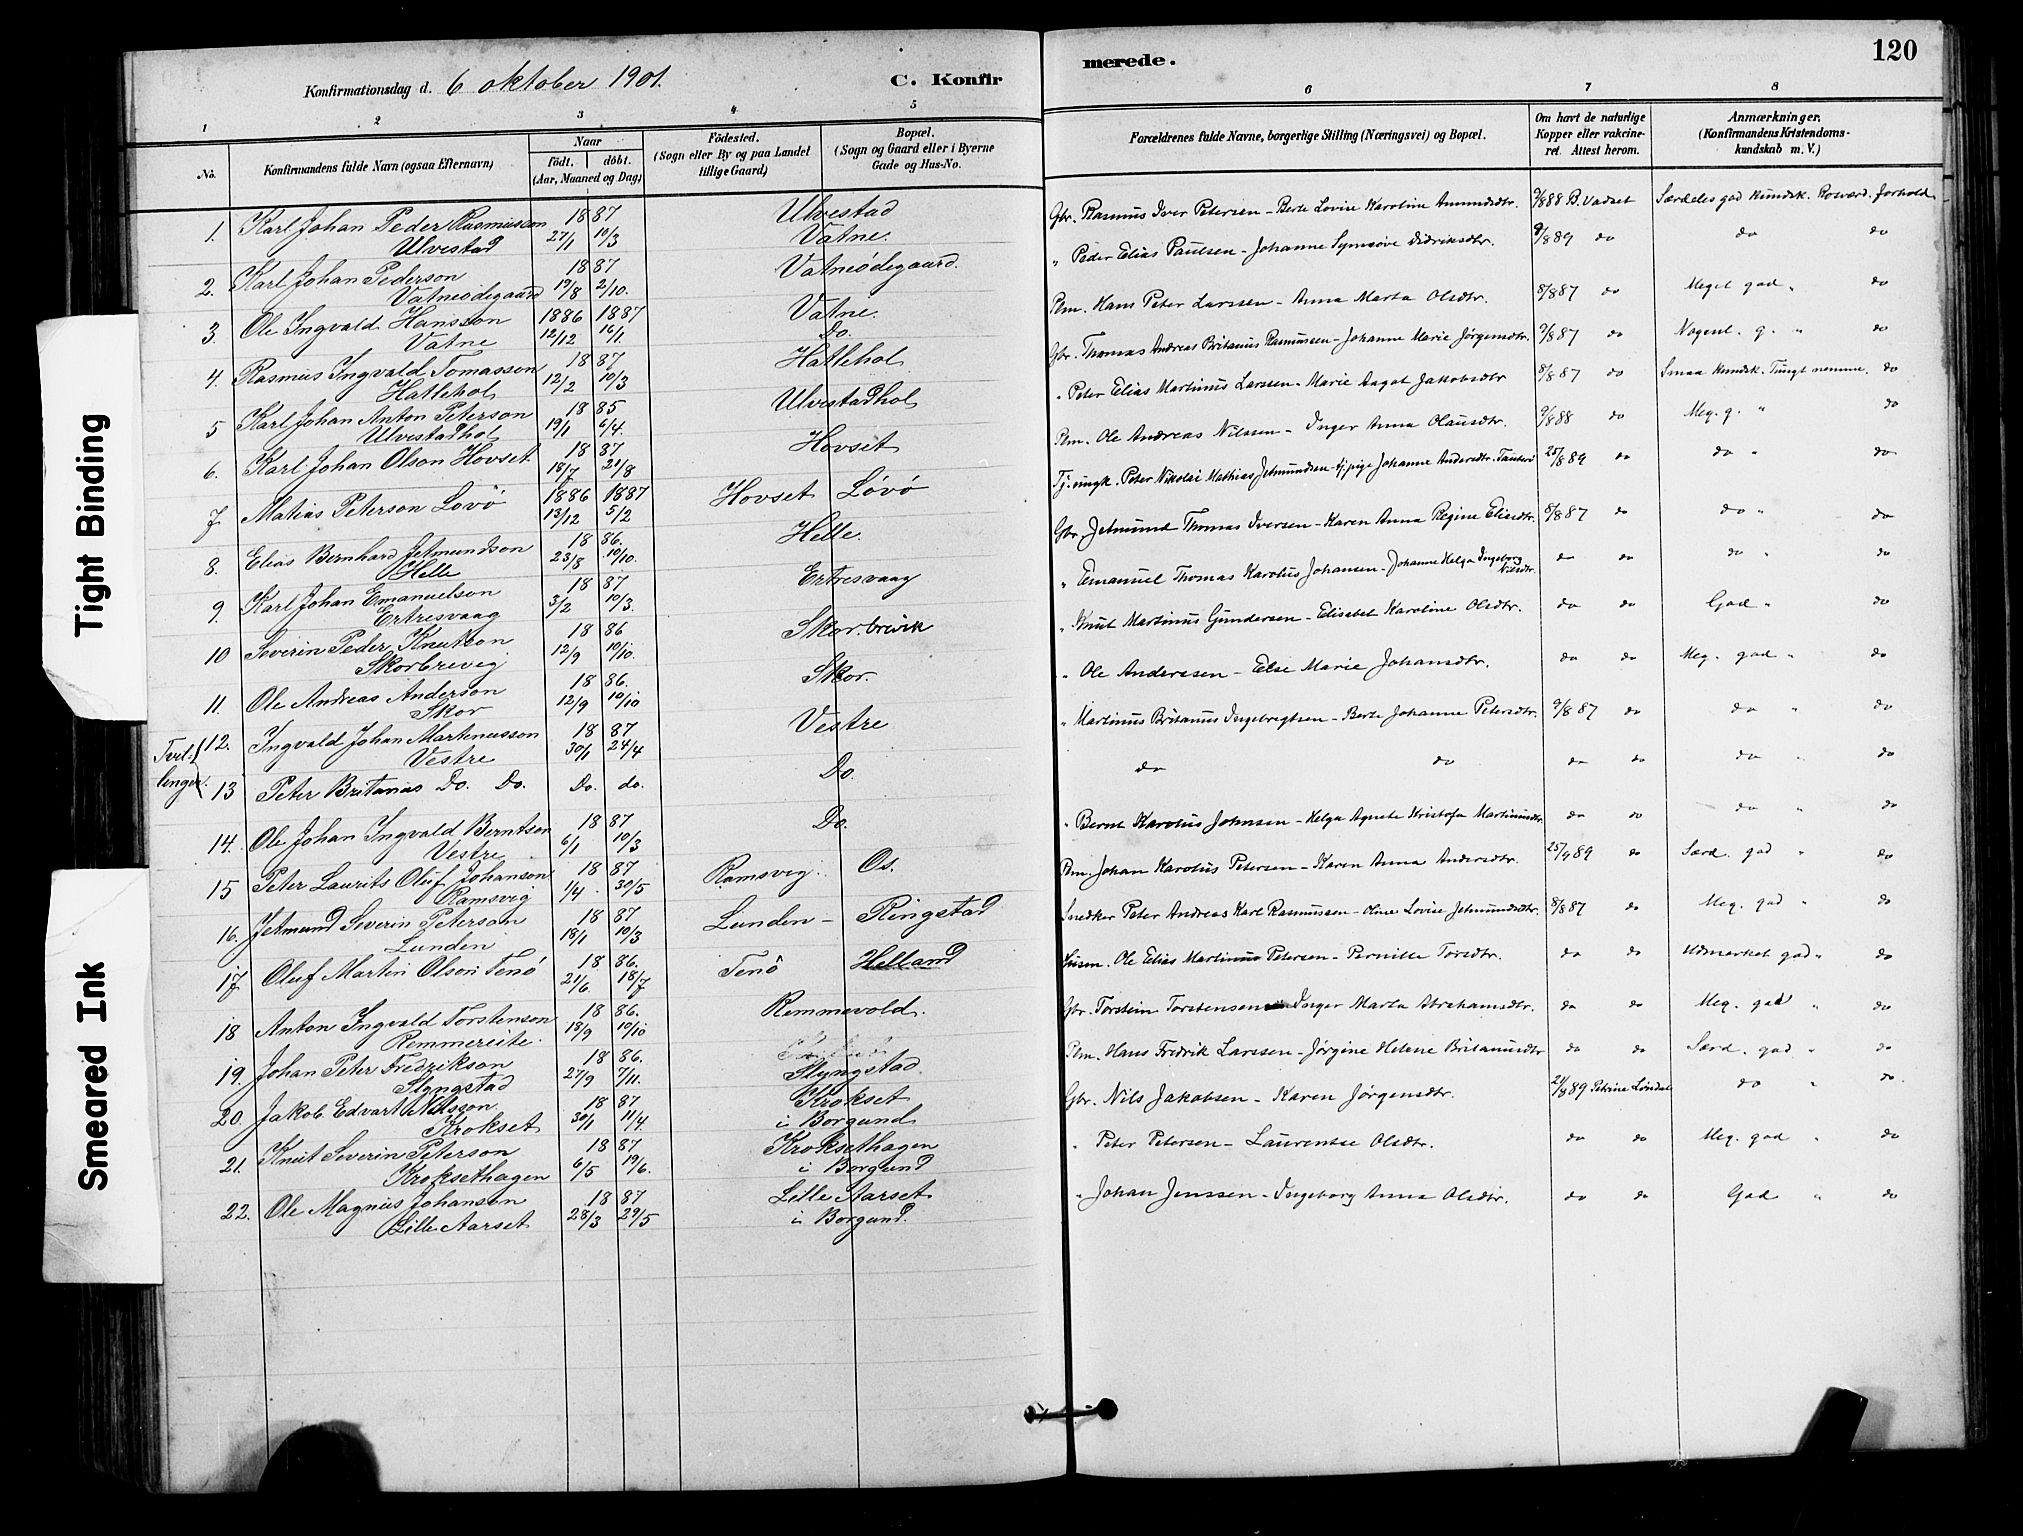 120
Konfirmationsdag d. 6 oktober 1901.
C. Konfir
merede.
1 2 3 4 5 6 7 8
No.
Konfirmandens fulde Navn (ogsaa Efternavn)
Naar
født. døbt.
(Aar, Maaned og Dag)
Fødested.
(Sogn eller By og paa Landet
tillige Gaard)
Bopæl.
(Sogn og Gaard eller i Byerne
Gade og Hus-No.
Forældrenes fulde Navne, borgerlige Stilling (Næringsvei) og Bopæl.
Om havt de naturlige
Kopper eller vakcine-
ret. Attest herom.
Anmærkninger.
(Konfirmandens Kristendoms-
kundskab m. V.)
1. Karl Johan Peder Rasmusson 1887 Ulvestad Gbr. Rasmus Iver Petersen - Berte Lovise Karoline Amundsdtr. 9/8 88 B. Vadset Særdeles god kundsk. Rosværd. forhold
Ulvestad 27/1 10/3 Vatne.
2. Karl Johan Pederson 1887 Vatneødegaard. " Peder Elias Paulsen - Johanne Synnøve Didriksdtr. 9/8 89 do do do
Vatneødegaard 19/8 2/10.
3. Ole Ingvald Hansson 1886 1887 Vatne. Plm. Hans Peter Larssen - Anna Marta Olsdtr. 8/8 87 do Meget god " do
Vatne 12/12 16/1 Do.
4. Rasmus Ingvald Tomasson 1887 Hattehol Gbr. Thomas Andreas Britanus Rasmussen - Johanne Marie Jørgensdtr. 9/8 87 do Nogenl. g. " do
Hattehol 12/2 10/3
5 Karl Johan Anton Peterson 1885 Ulvestadhol " Peter Elias Martinus Larssen - Marie Aagot Jakobsdtr 8/8 87 do Smaa kundsk. Tungt nemme. do
Ulvestadhol 19/1 6/4.
6. Karl Johan Olson Hovset 1887 Hovset Plm. Ole Andreas Nilssen - Inger Anna Olausdtr. 9/8 88 do Meg. g. " do
18/7 21/8
7 Matias Peterson Løvø 1886 1887 Hovset Løvø Tj. ungk. Peter Nikolai Mathias Jetmundsen - tj. pige Johanne Andersdtr. 25/8 89 do do " do
13/12 5/2
8. Elias Bernhard Jetmundson 1886. Helle. Gbr. Jetmund Thomas Iversen - Karen Anna Regine Elisdtr. 8/8 87 do do " do
Helle 23/8 10/10.
9. Karl Johan Emanuelson 1887 Ertresvaag " Emanuel Thomas Karolus Johansen - Johanne Helga Ingeborg Nilsdtr. do do do " do
Ertresvaag 3/2 10/3.
10 Severin Peder Knutson 1886 Skor.brevik " Knut Martinus Gundersen - Elisabet Karoline Olsdtr. do do God " do
Skorbrevig 12/9 10/10.
11. Ole Andreas Anderson 1886. Skor. " Ole Anderssen - Else Marie Johansdtr. do do Meg. god " do
Skor 12/9 10/10
Tvil-
linger.
12. Ingvald Johan Martenusson 1887 Vestre " Martinus Britanus Ingebregtsen - Berte Johanne Petersdtr. 9/8 87 do do " do
Vestre 30/1 24/4
13 Peter Britanus Do. Do. Do. do. Do. do do do do do " do
14. Ole Johan Ingvald Berntson 1887 Do. " Bernt Karolus Johnsen - Helga Agnete Kristofa Martinusdtr. do do do " do
Vestre 6/1 10/3
15 Peter Laurits Oluf Johanson 1887 Ramsvig. Os. Plm. Johan Karolus Petersen - Karen Anna Andersdtr. 25/9 89 do Særd. god " do
Ramsvig 1/4 30/5
16. Jetmund Severin Peterson 1887 Lunden - Ringstad Snedker Peter Andreas Karl Rasmussen - Oline Lovise Jetmundsdtr. 8/8 87 do Meg. god " do
Lunden 18/1 10/3
17 Oluf Martin Olson Tenø 1886. Tenø Helland Husm. Ole Elias Martinus Petersen - Pernille Toredtr. do do Udmærket god " do
21/6 18/7
18 Anton Ingvald Torstenson 1886. Remmevold. Gbr. Torstein Torstensen - Inger Marta Abrahamsdtr. do do Meg. god " do
Remmereite. 18/9 10/10
19. Johan Peter Fredrikson 1886. Slyngstad Plm. Hans Fredrik Larssen - Jørgine Helene Britanusdtr do do Særd. god " do
Slyngstad 27/9 7/11.
20. Jakob Edvart Nilsson 1887 Krokset Gbr. Nils Jakobsen - Karen Jørgensdtr. 21/8 89 Petrine Løvdal do " do
Krokset 30/1 11/4. i Borgund
21. Knut Severin Peterson 1887 Kroksethagen " Peter Petersen - Laurentse Olsdtr. do do Meg. god " do
Kroksethagen 6/5 19/6. i Borgund
22. Ole Magnus Johanson 1887 Lille Aarset " Johan Jenssen - Ingeborg Anna Olsdtr. do do God " do
Lille Aarset 28/3 29/5 i Borgund.
Tight Binding
Smeared Ink